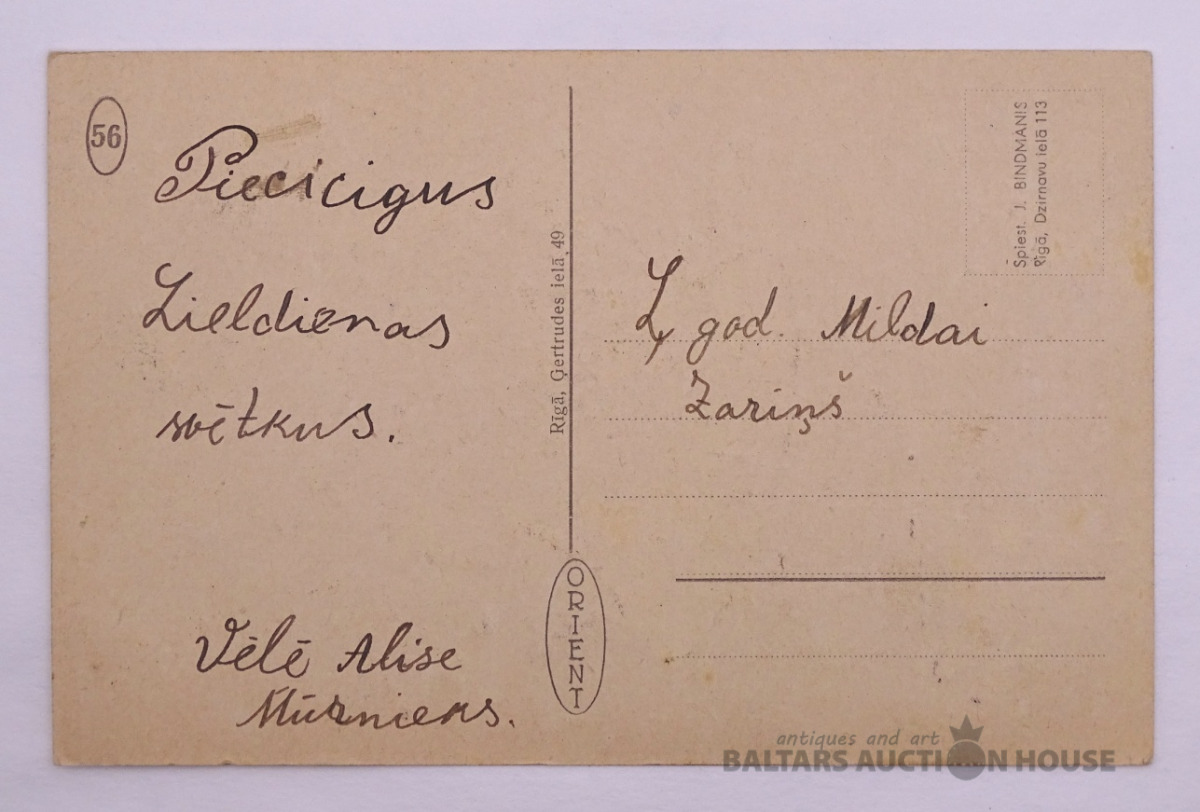 56
Piecicigus
Lieldienas
svētkus.
Vēlē Alise
Mūrnieks.
Rīgā, Ģertrudes ielā, 49
ORIENT
Spiest. J. BINDMANIS
Rīgā, Dzirnavu ielā 113
Ļ god. Mildai
Zariņš
antiques and art
BALTARS AUCTION HOUSE